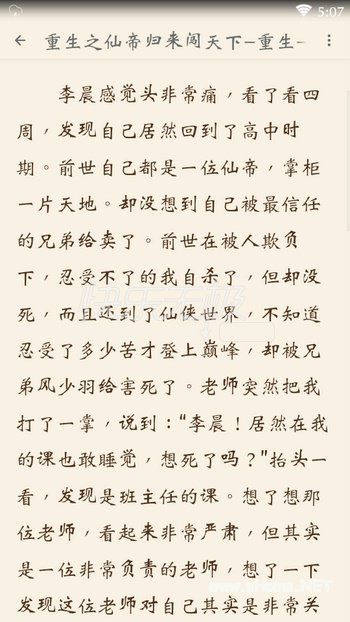 5:07
重生之仙帝归来闯天下-重生-
李晨感觉头非常痛，看了看四
周，发现自己居然回到了高中时
期。前世自己都是一位仙帝，掌柜
一片天地。却没想到自己被最信任
的兄弟给卖了。前世在被人欺负
下，忍受不了的我自杀了，但却没
死，而且还到了仙侠世界，不知道
忍受了多少苦才登上巅峰，却被兄
弟风少羽给害死了。老师突然把我
打了一掌，说到：“李晨！居然在我
的课也敢睡觉，想死了吗？”抬头一
看，发现是班主任的课。想了想那
位老师，看起来非常严肃，但其实
是一位非常负责的老师，想了一下
发现这位老师对自己其实是非常关